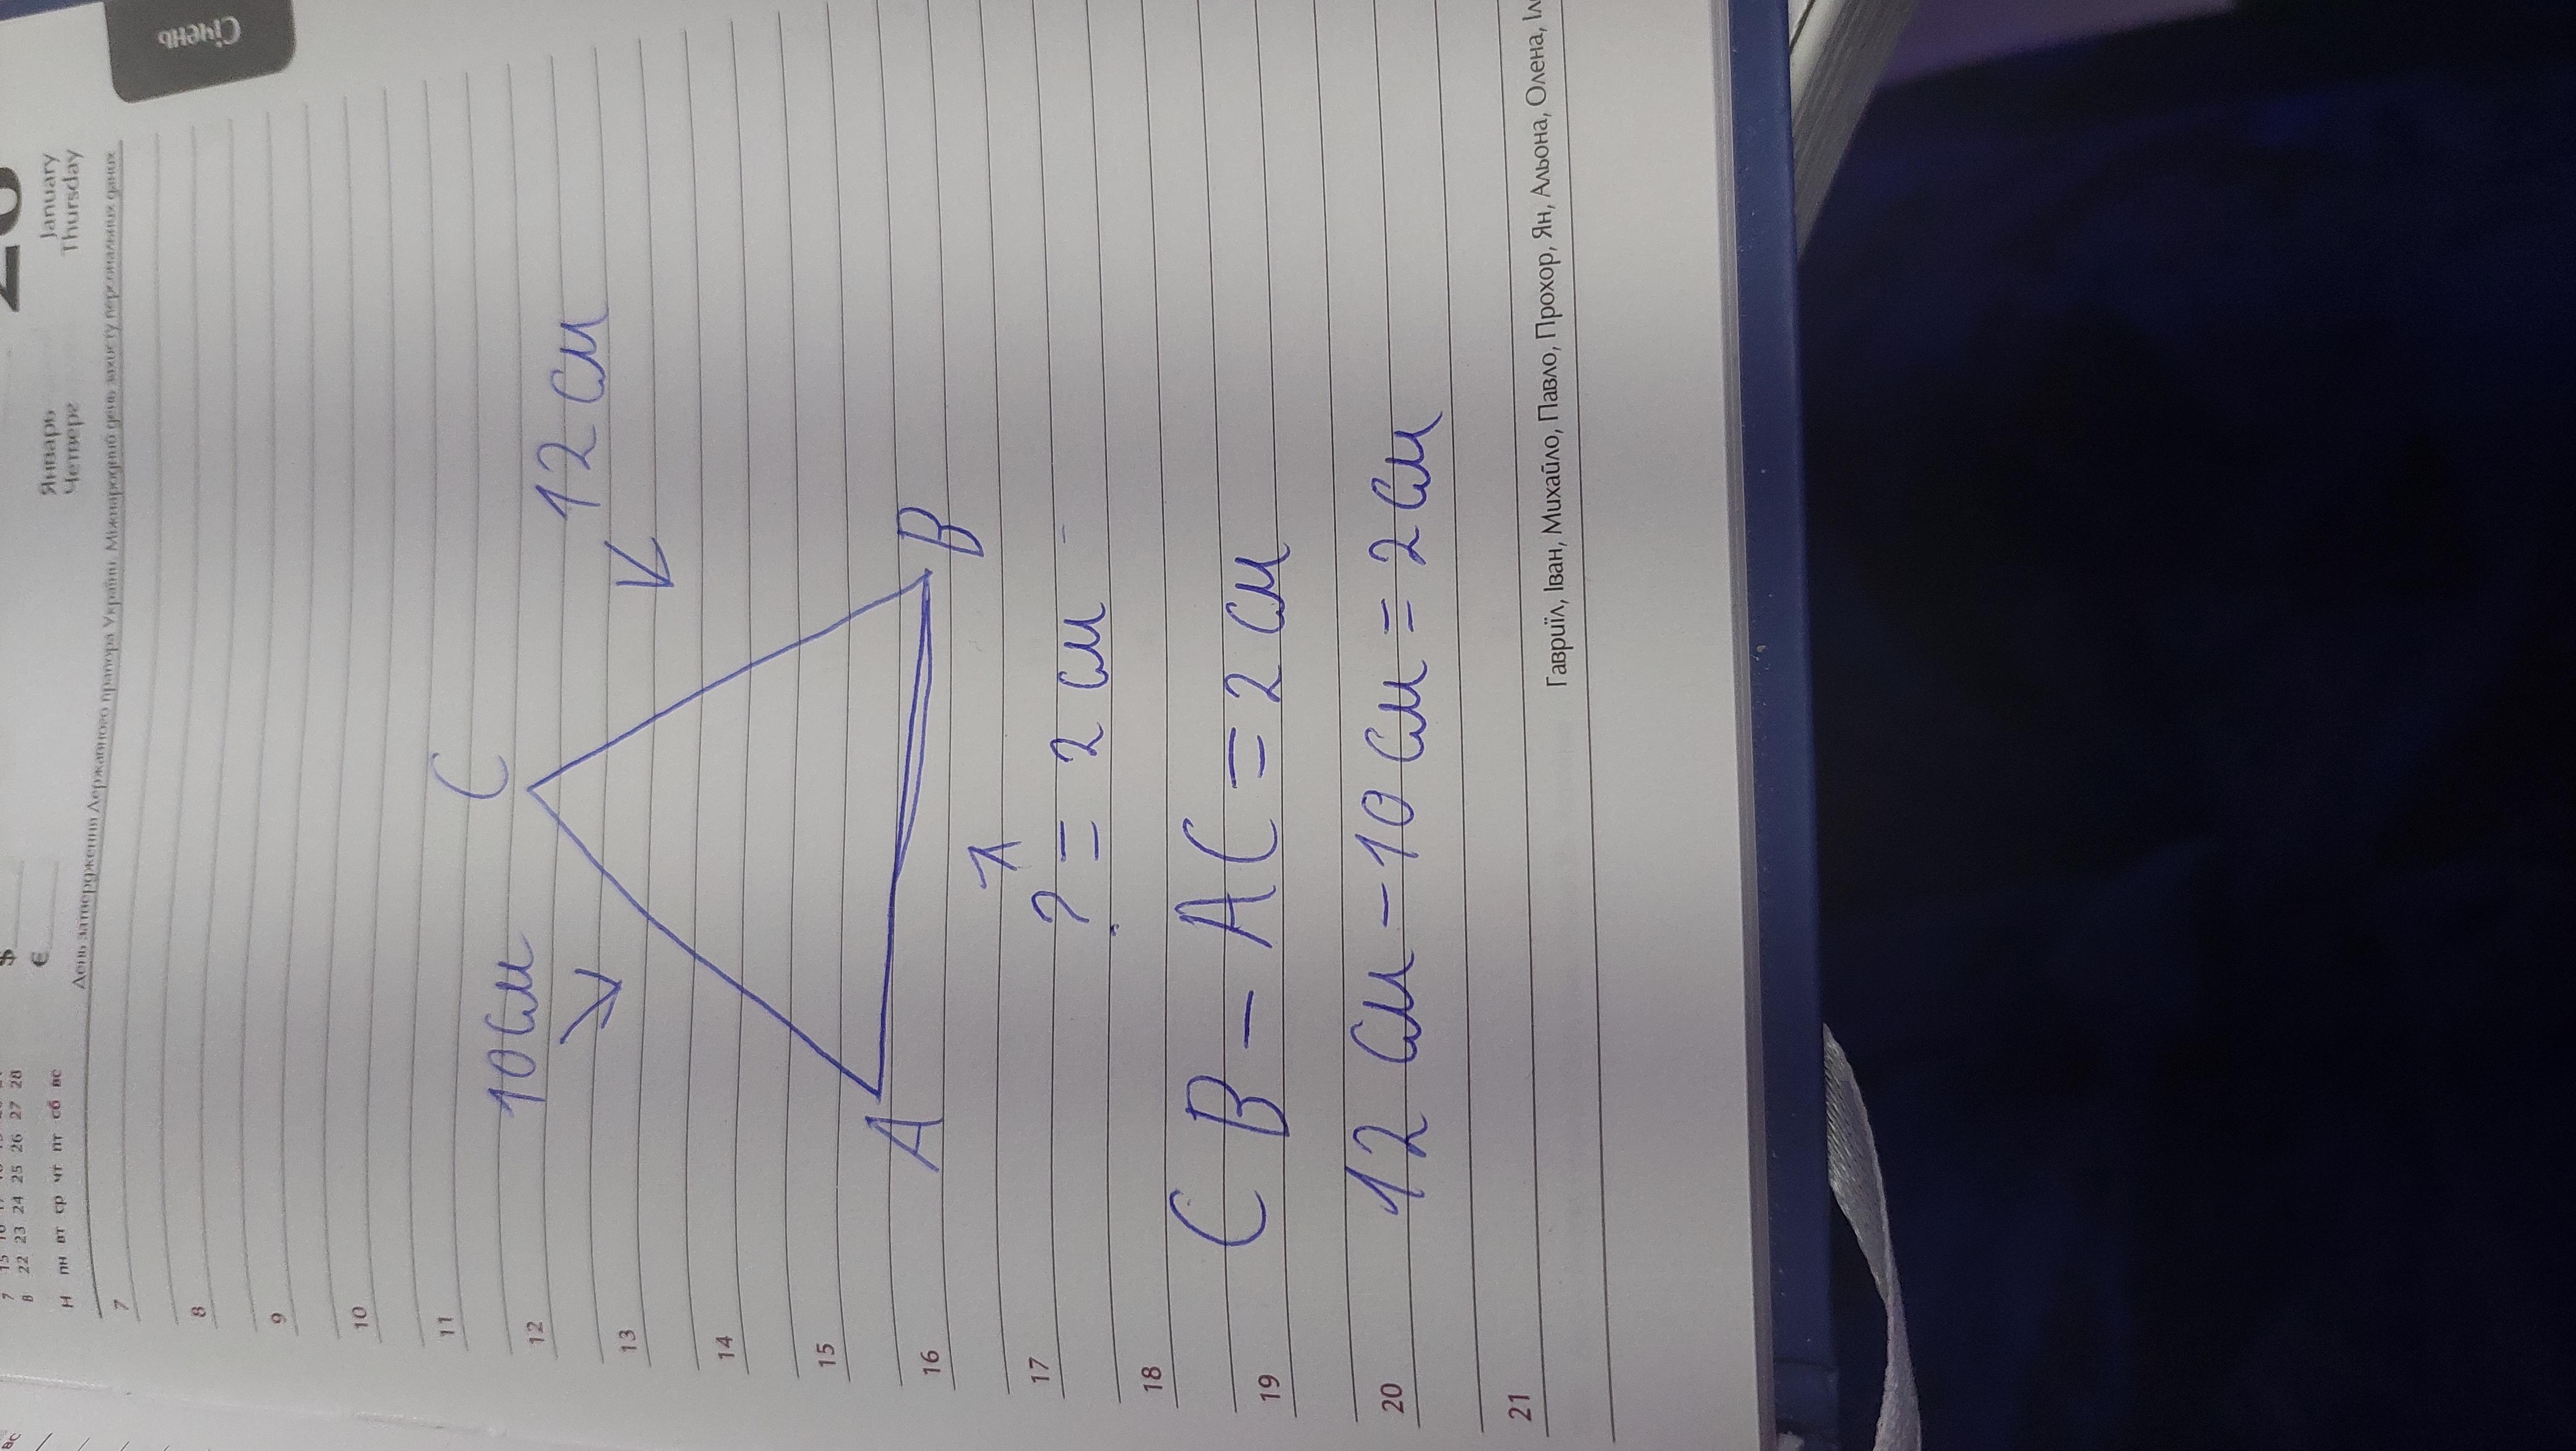 Січень
January
Thursday
Январь
Четверг
$
€
22 23 24 25 26 27 28
н пн вт ср чт пт сб вс
День затвердження Державного прапора України. Міжнародний день захисту персональних даних
7
8
9
10
11
C
12
10 см
12 см
13
14
15
16
A
B
17
? = 2 см
18
19
CB - AC = 2 см
20
12 см - 10 см = 2 см
21
Гавриїл, Іван, Михайло, Павло, Прохор, Ян, Альона, Олена,